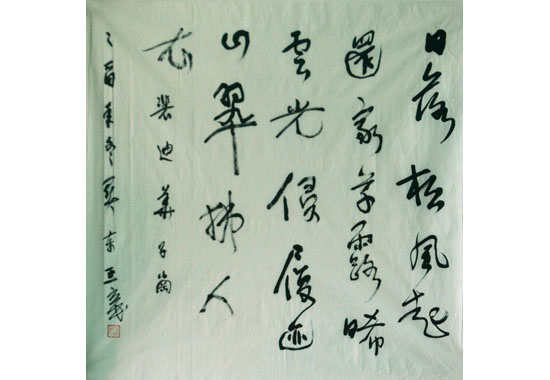 日落松風起
還家草露晞
雲光侵履迹
山翠拂人
衣 裴迪華子崗
乙酉年冬